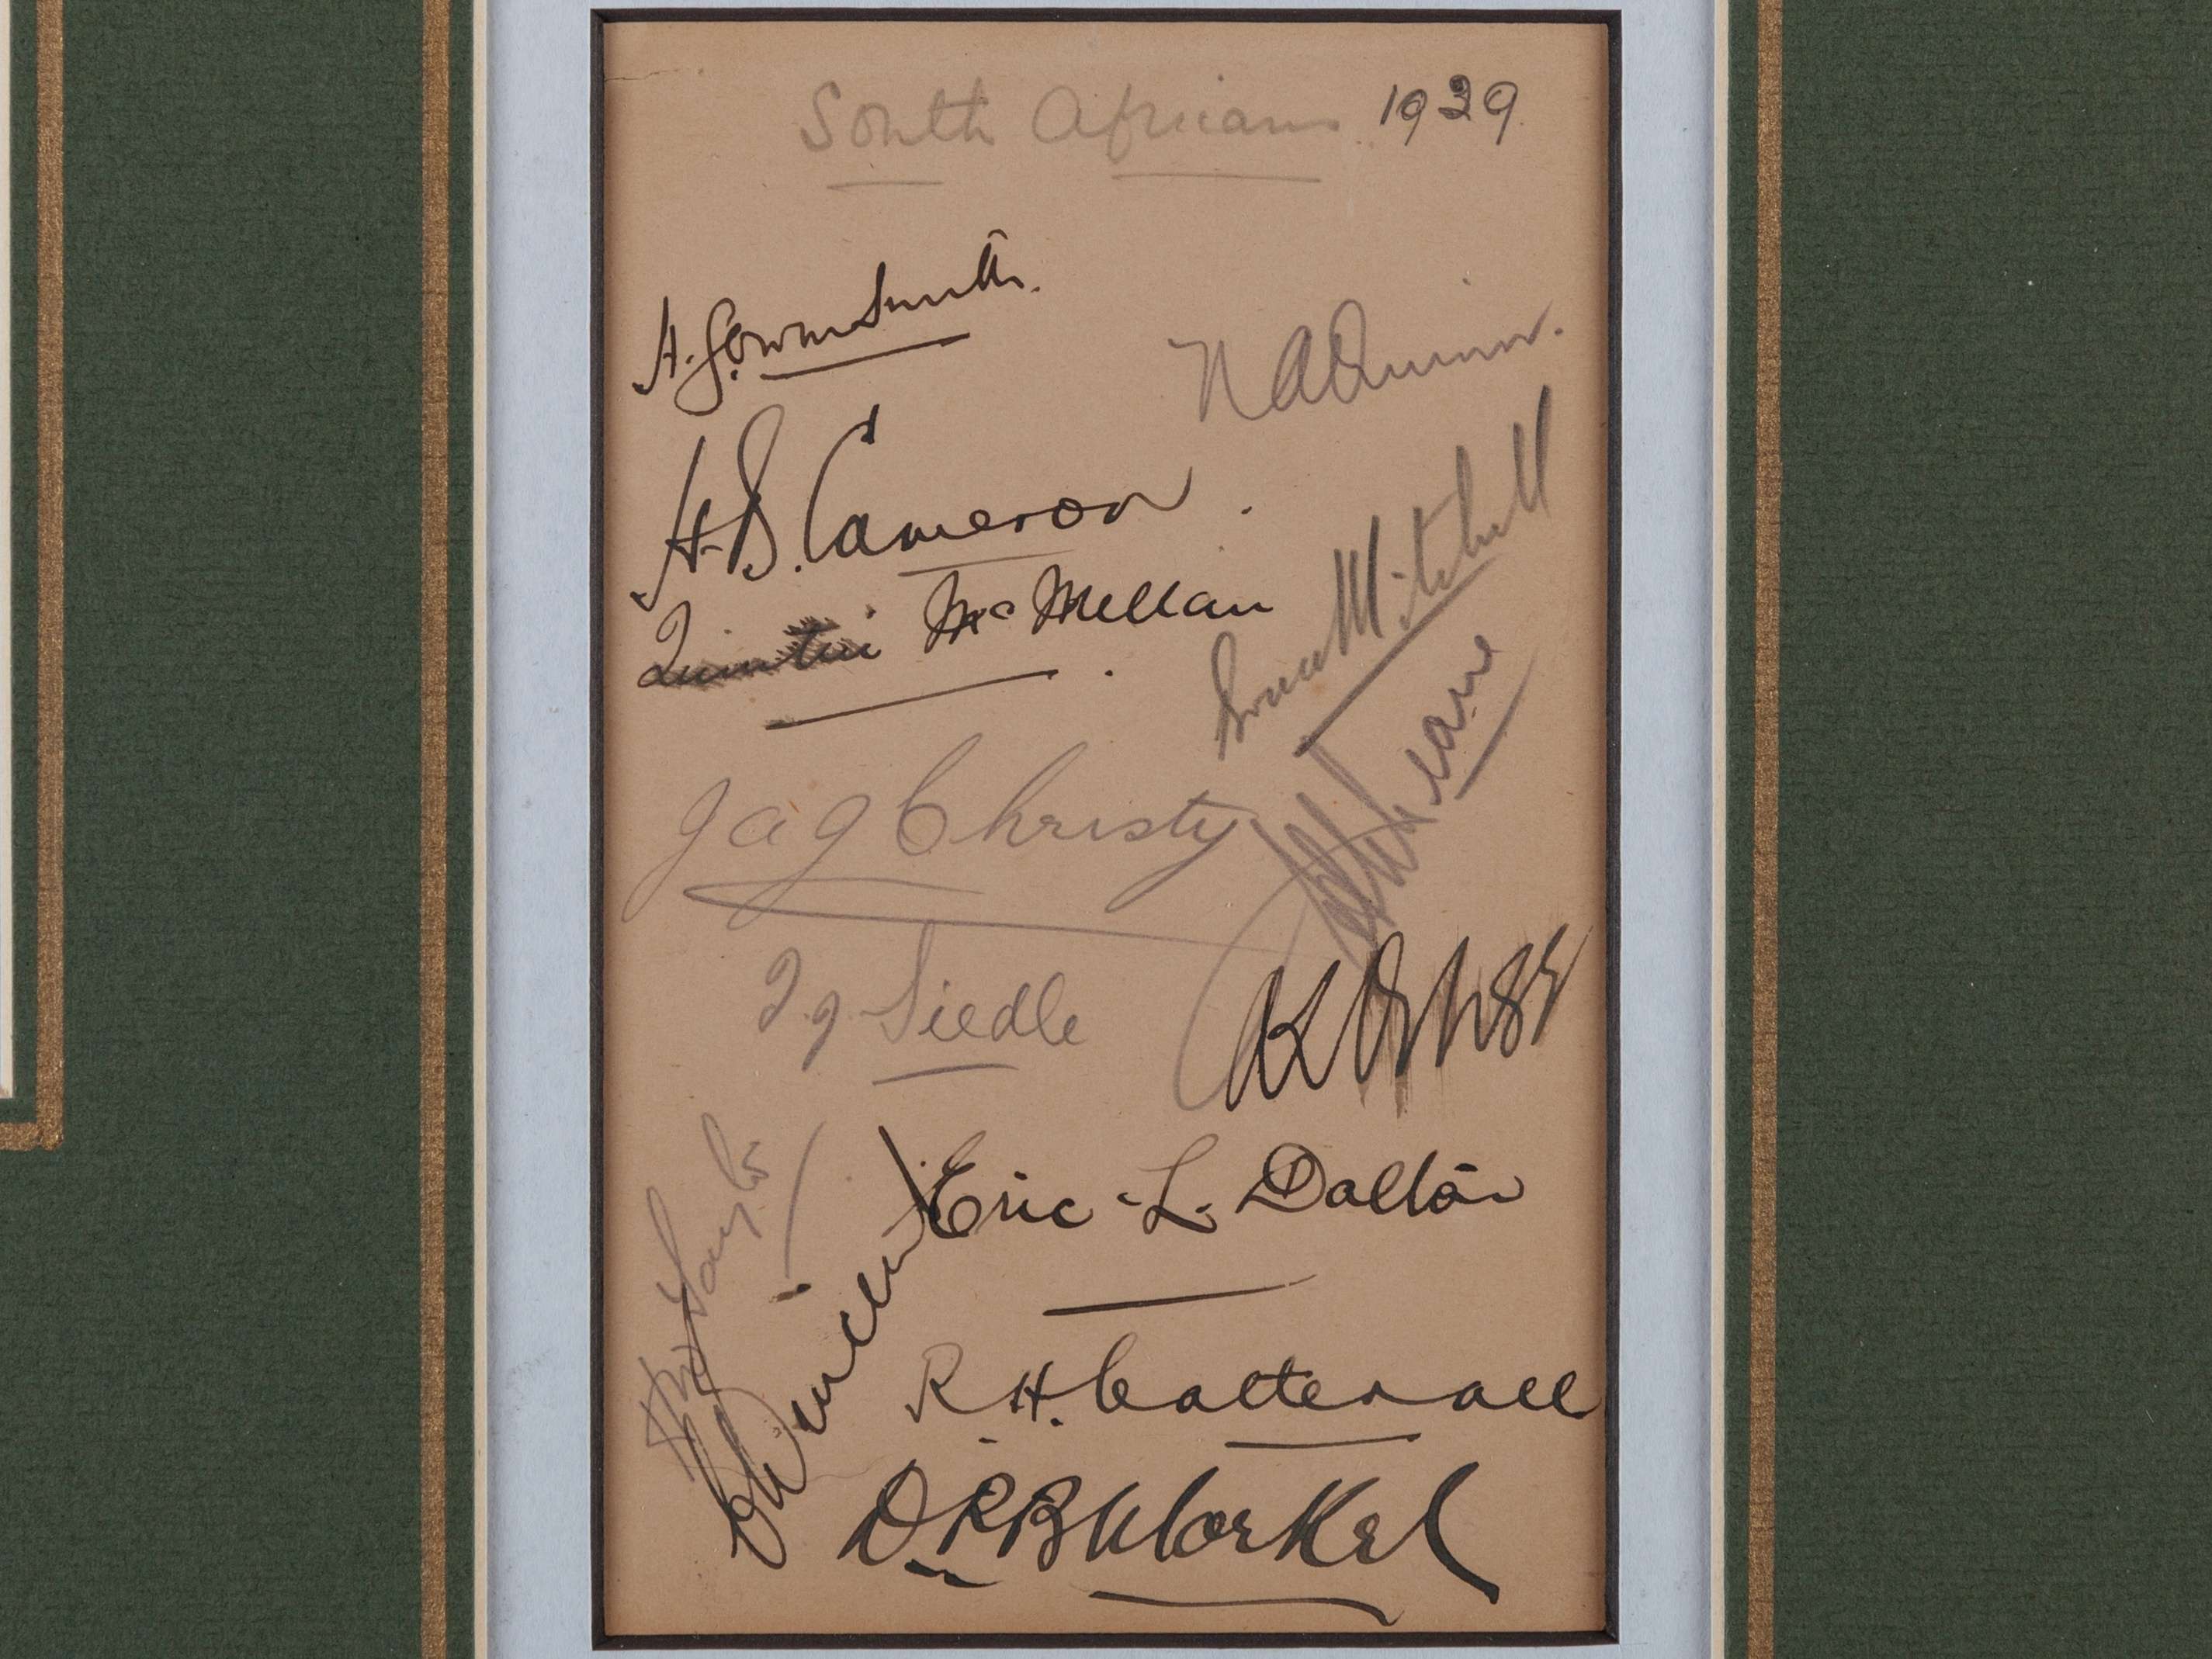 South Africans. 1929.
A. Gowrm Smith.
N A Quinn.
H.B. Cameron.
Bruce Mitchell
Quintin McMillan
J A J Christy
I. J. Siedle
Eric L. Dalton
R H. Catterall
D P B Morkel